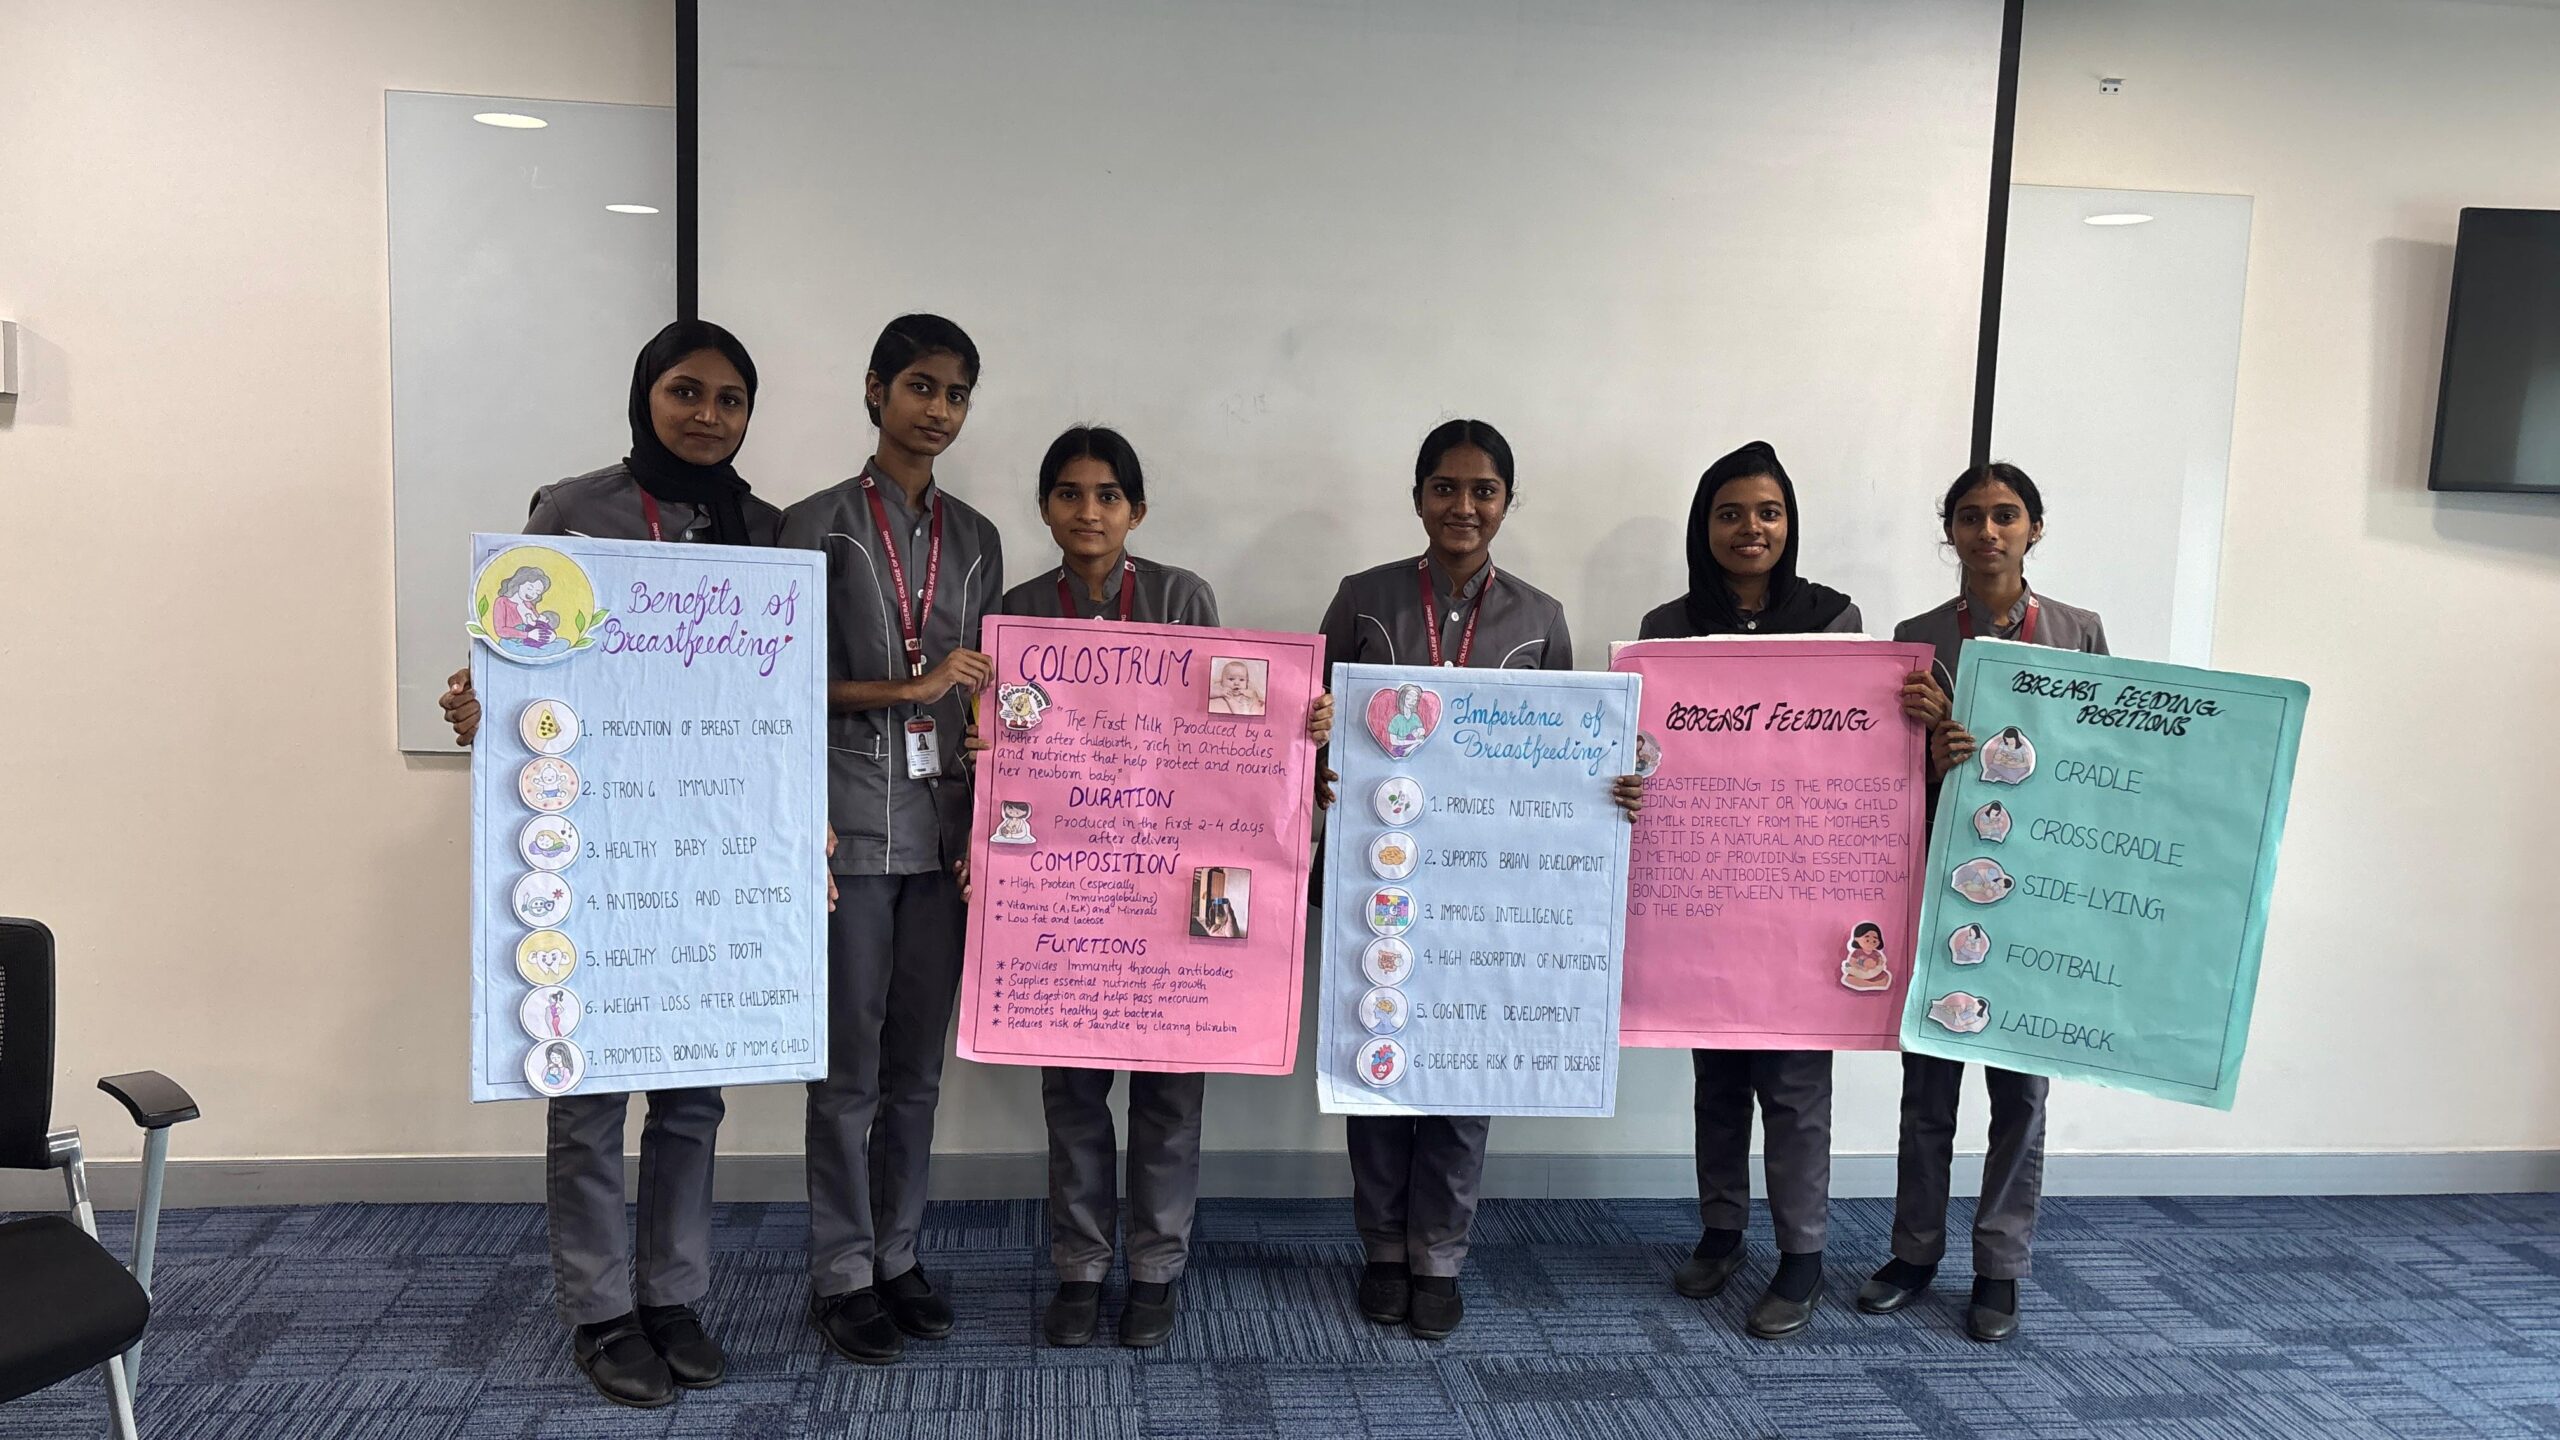 Benefits of
Breastfeeding
1. PREVENTION OF BREAST CANCER
2. STRONG IMMUNITY
3. HEALTHY BABY SLEEP
4. ANTIBODIES AND ENZYMES
5. HEALTHY CHILD'S TOOTH
6. WEIGHT LOSS AFTER CHILDBIRTH
7. PROMOTES BONDING OF MOM & CHILD
FEDERAL COLLEGE OF NURSING
FEDERAL COLLEGE OF NURSING
COLOSTRUM
Colostrum
"The First Milk Produced by a
Mother after childbirth, rich in antibodies
and nutrients that help protect and nourish
her newborn baby"
DURATION
Produced in the First 2-4 days
after delivery
COMPOSITION
* High Protein (especially
immunoglobulins)
* Vitamins (A,E,K) and Minerals
* Low fat and lactose
FUNCTIONS
* Provides immunity through antibodies
* Supplies essential nutrients for growth
* Aids digestion and helps pass meconium
* Promotes healthy gut bacteria
* Reduces risk of Jaundice by clearing bilirubin
COLLEGE OF NURSING
Importance of
Breastfeeding
1. PROVIDES NUTRIENTS
2. SUPPORTS BRIAN DEVELOPMENT
3. IMPROVES INTELLIGENCE
4. HIGH ABSORPTION OF NUTRIENTS
5. COGNITIVE DEVELOPMENT
6. DECREASE RISK OF HEART DISEASE
BREAST FEEDING
BREASTFEEDING IS THE PROCESS OF
EDING AN INFANT OR YOUNG CHILD
TH MILK DIRECTLY FROM THE MOTHERS
EAST IT IS A NATURAL AND RECOMMEN
D METHOD OF PROVIDING ESSENTIAL
UTRITION ANTIBODIES AND EMOTIONA
BONDING BETWEEN THE MOTHER
ND THE BABY
BREAST FEEDING
POSITIONS
CRADLE
CROSS CRADLE
SIDE-LYING
FOOTBALL
LAID-BACK